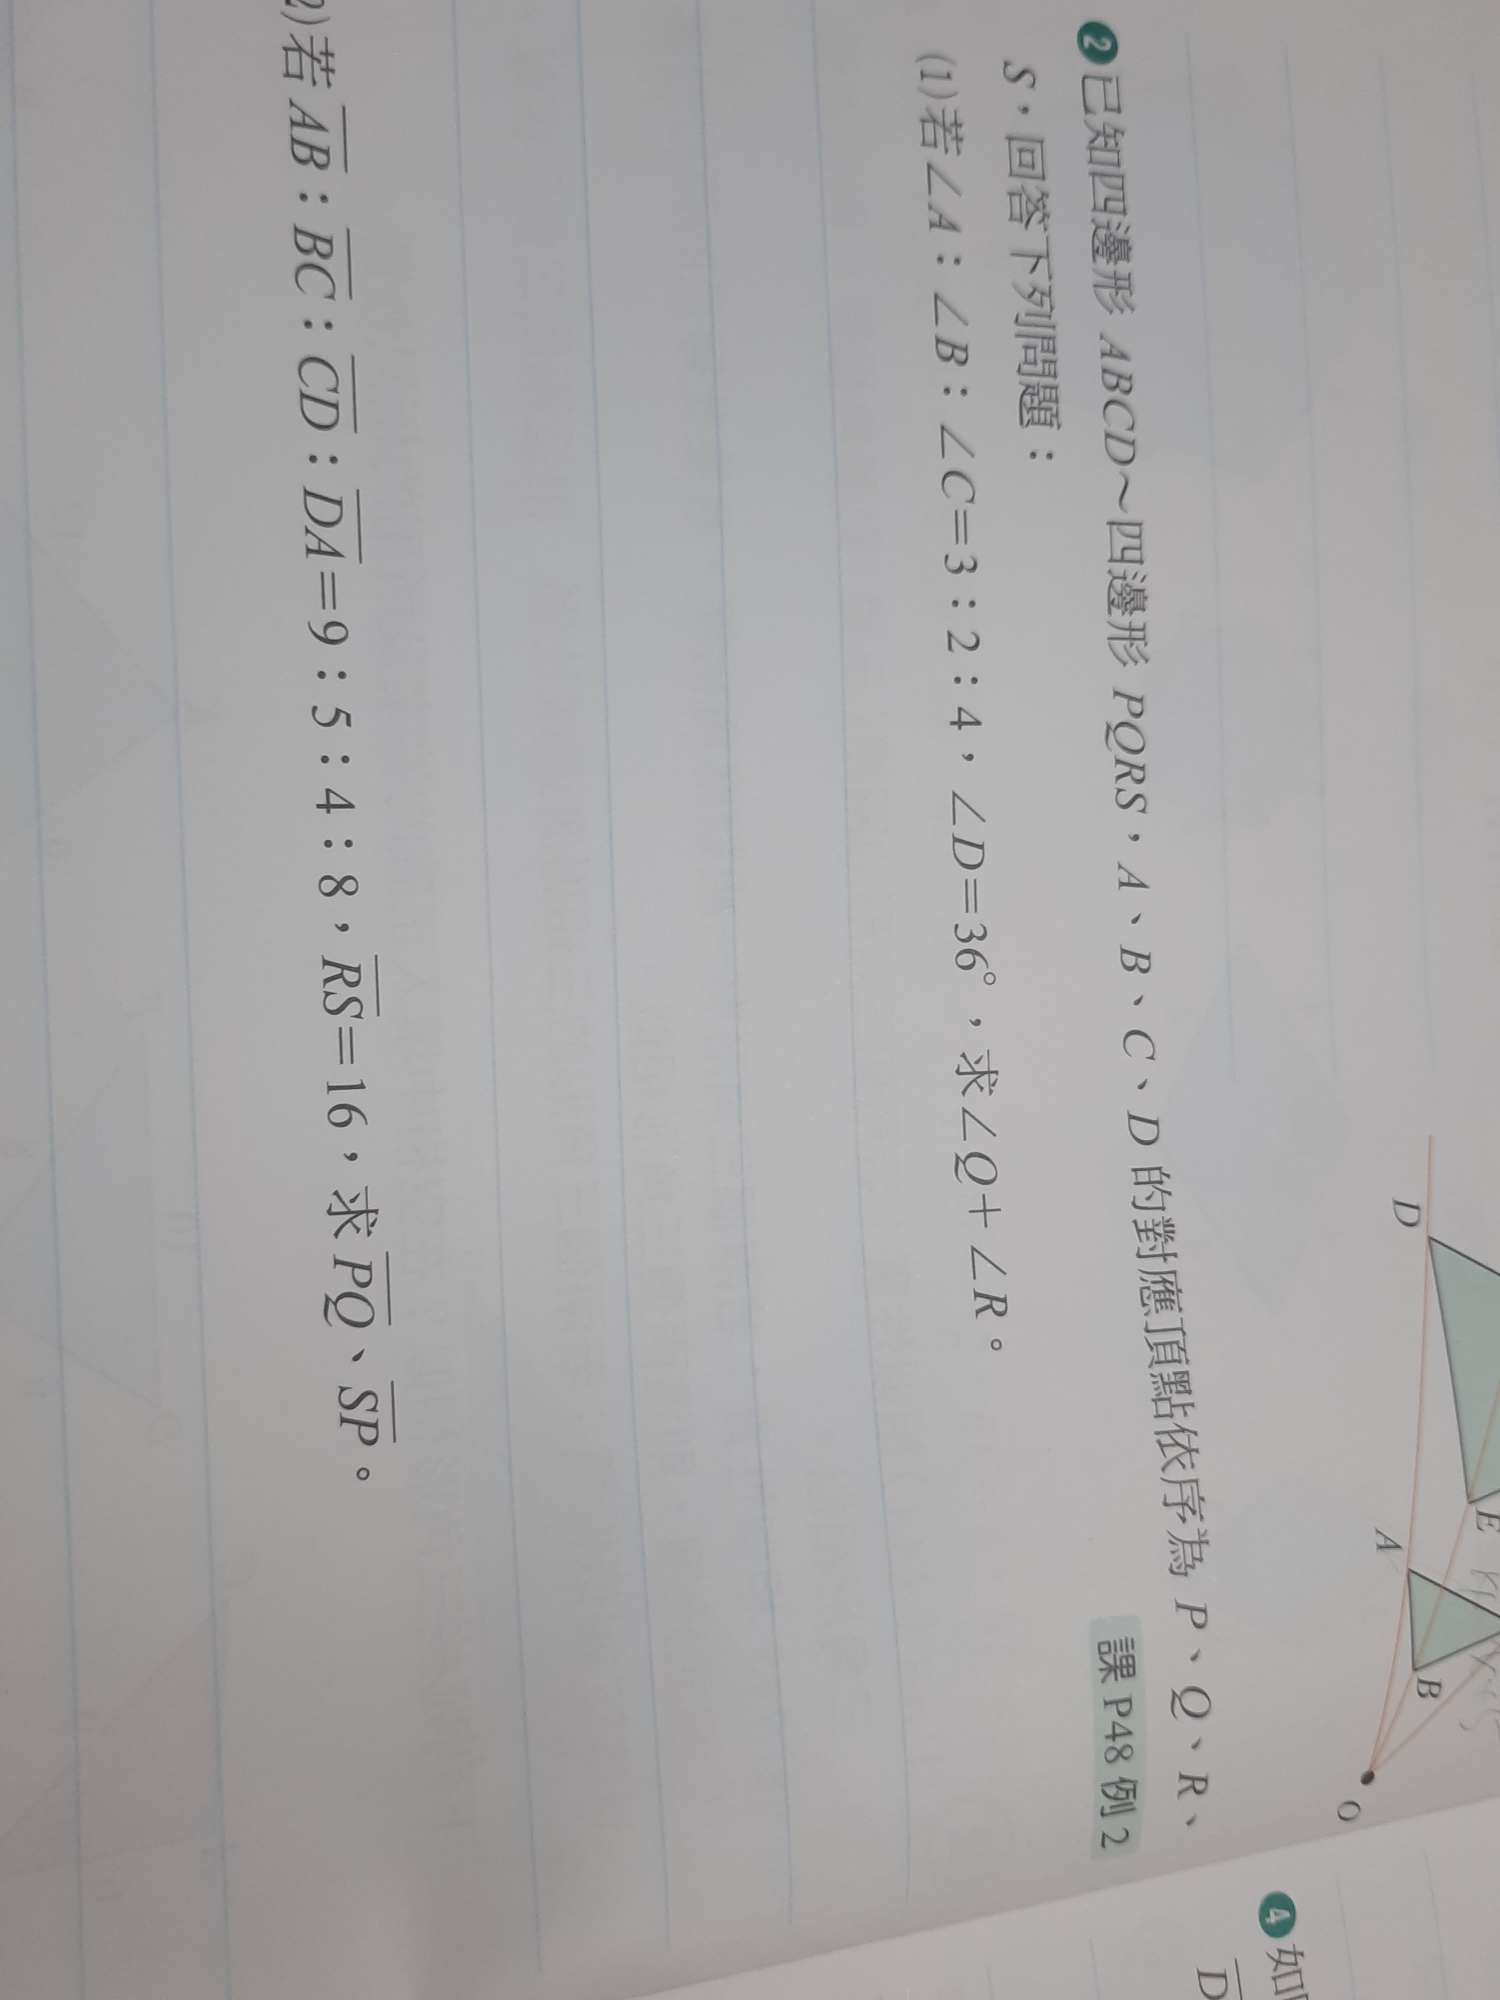 D
E
A
B
O
❷已知四邊形 ABCD～四邊形 PQRS，A、B、C、D 的對應頂點依序為 P、Q、R、
S，回答下列問題：
課 P48 例 2
(1)若∠A：∠B：∠C=3：2：4，∠D=36°，求∠Q+∠R。
2)若 A̅B̅：B̅C̅：C̅D̅：D̅A̅=9：5：4：8，R̅S̅=16，求 P̅Q̅、S̅P̅。
❹如
D